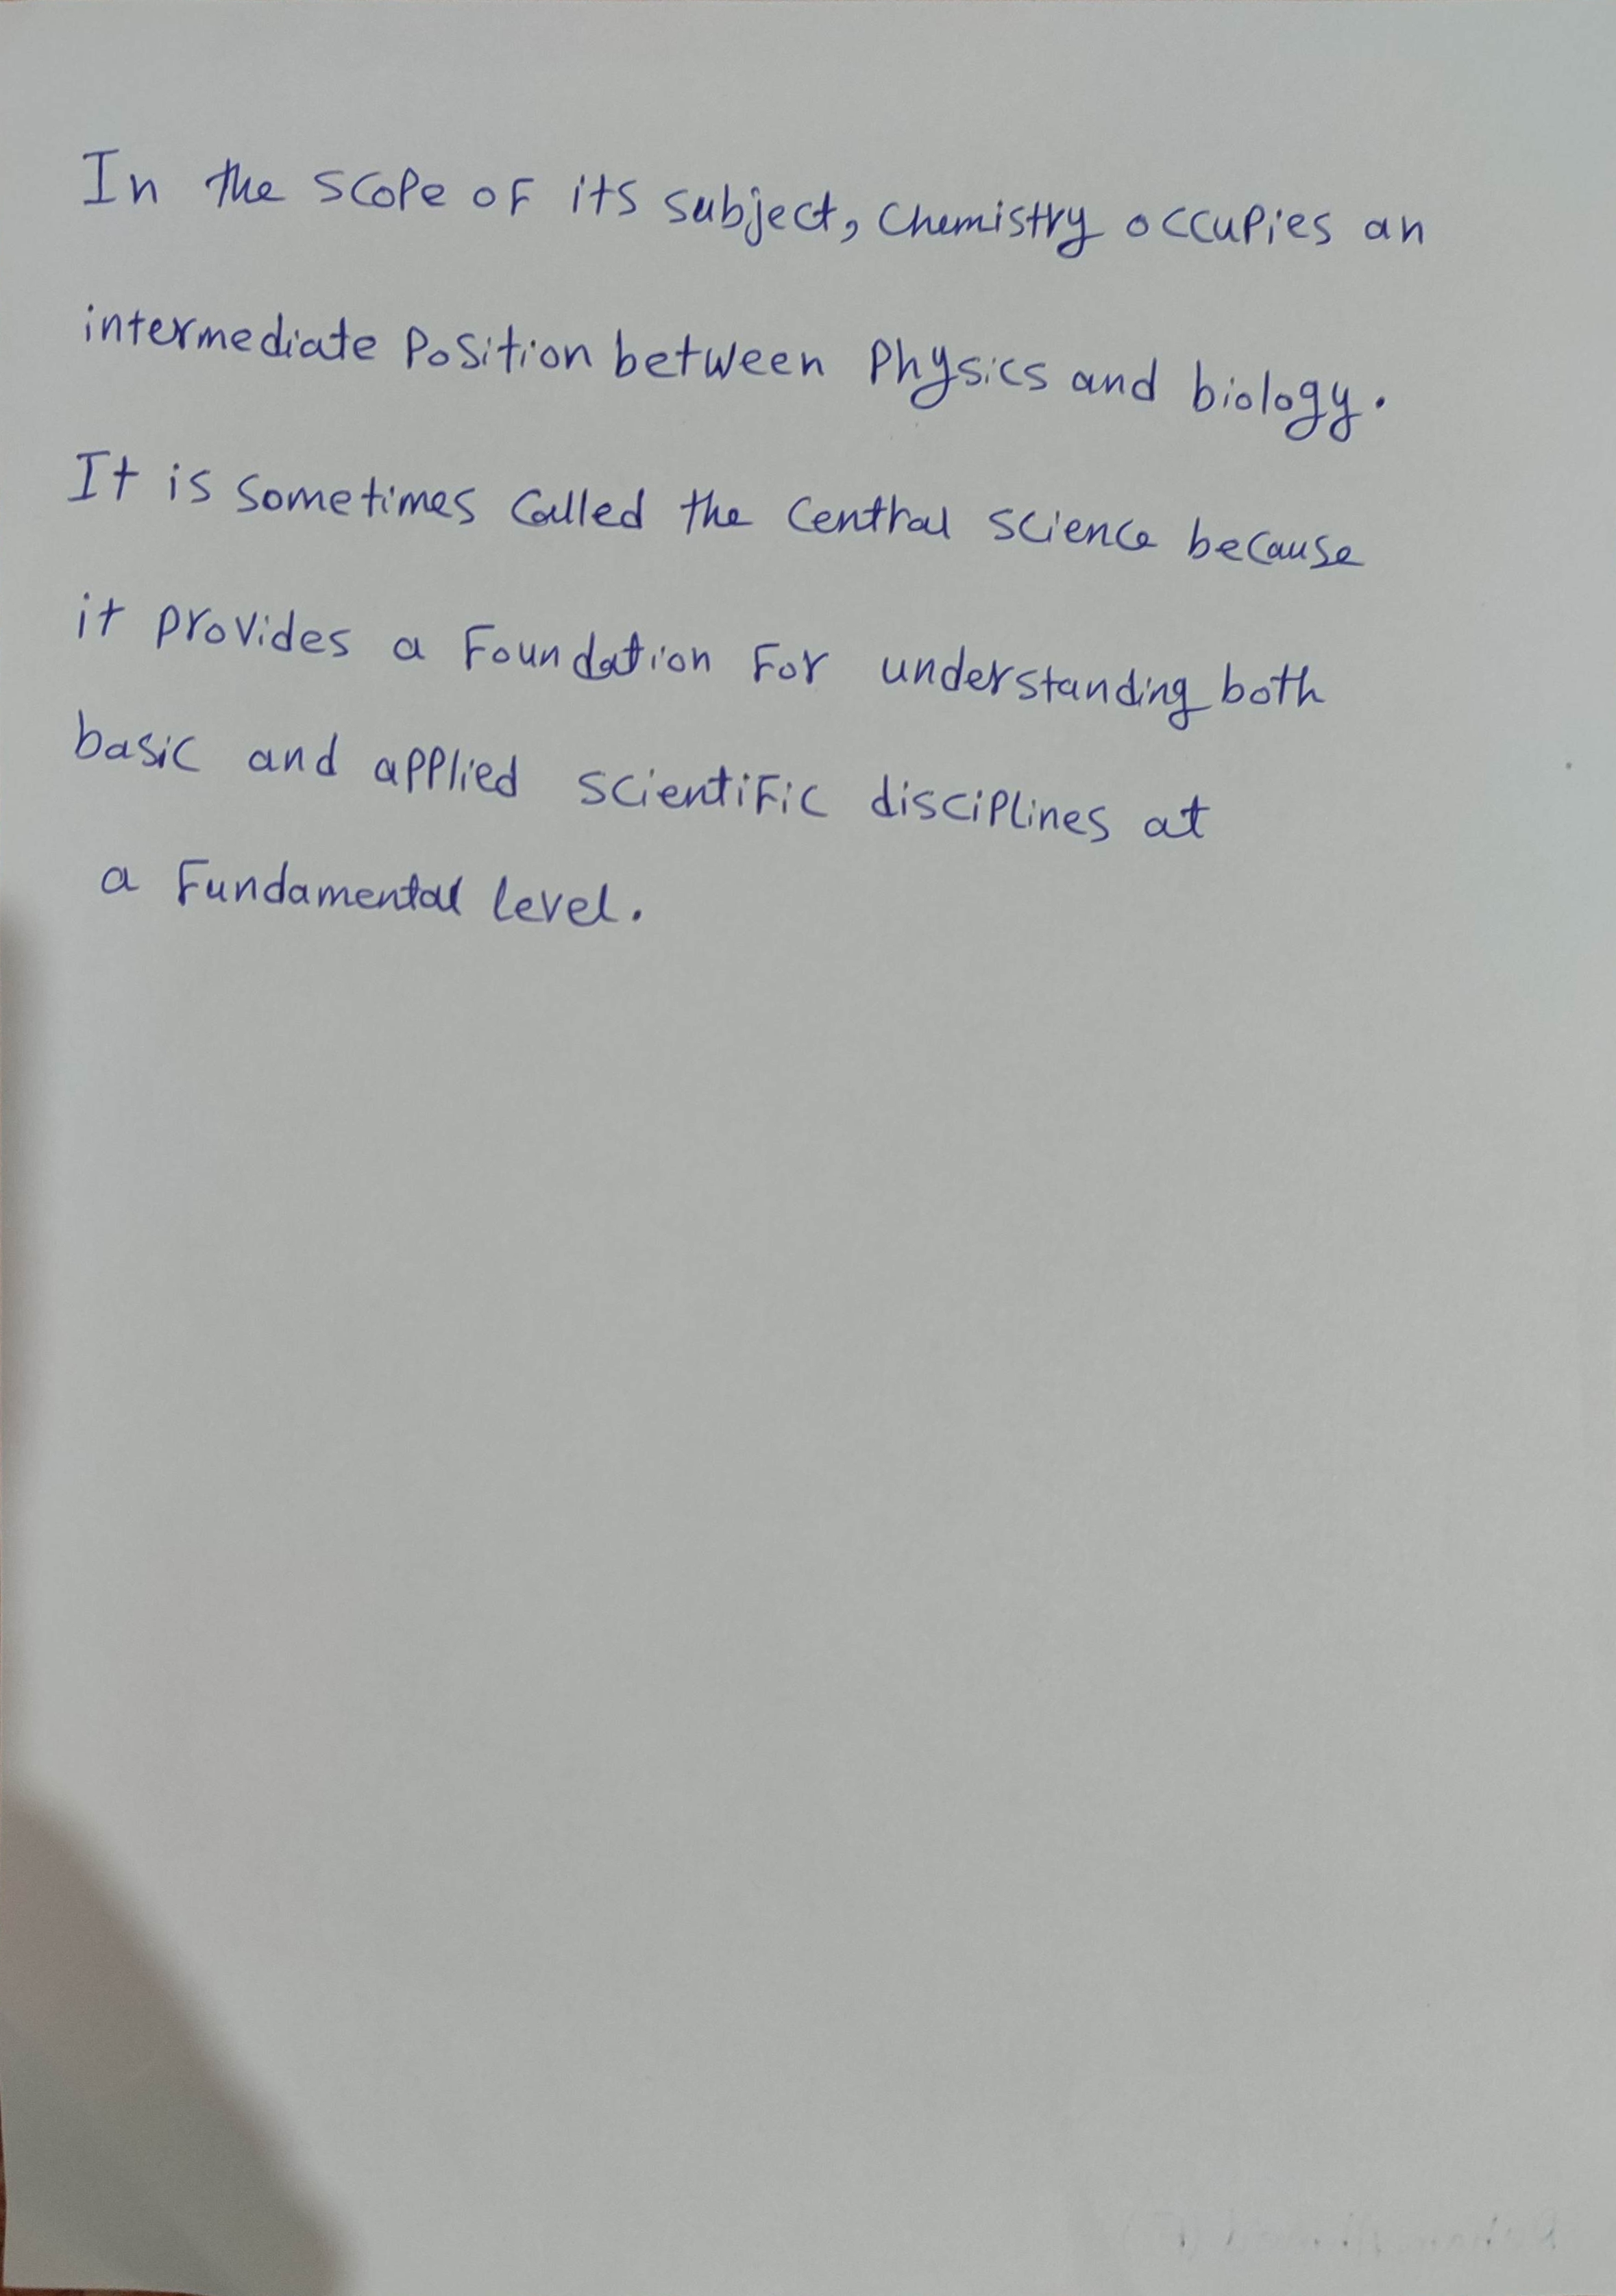 In the scope of its subject, Chemistry occupies an
intermediate Position between Physics and biology.
It is sometimes called the Central science because
it provides a Foundation For understanding both
basic and applied scientific disciplines at
a Fundamental level.